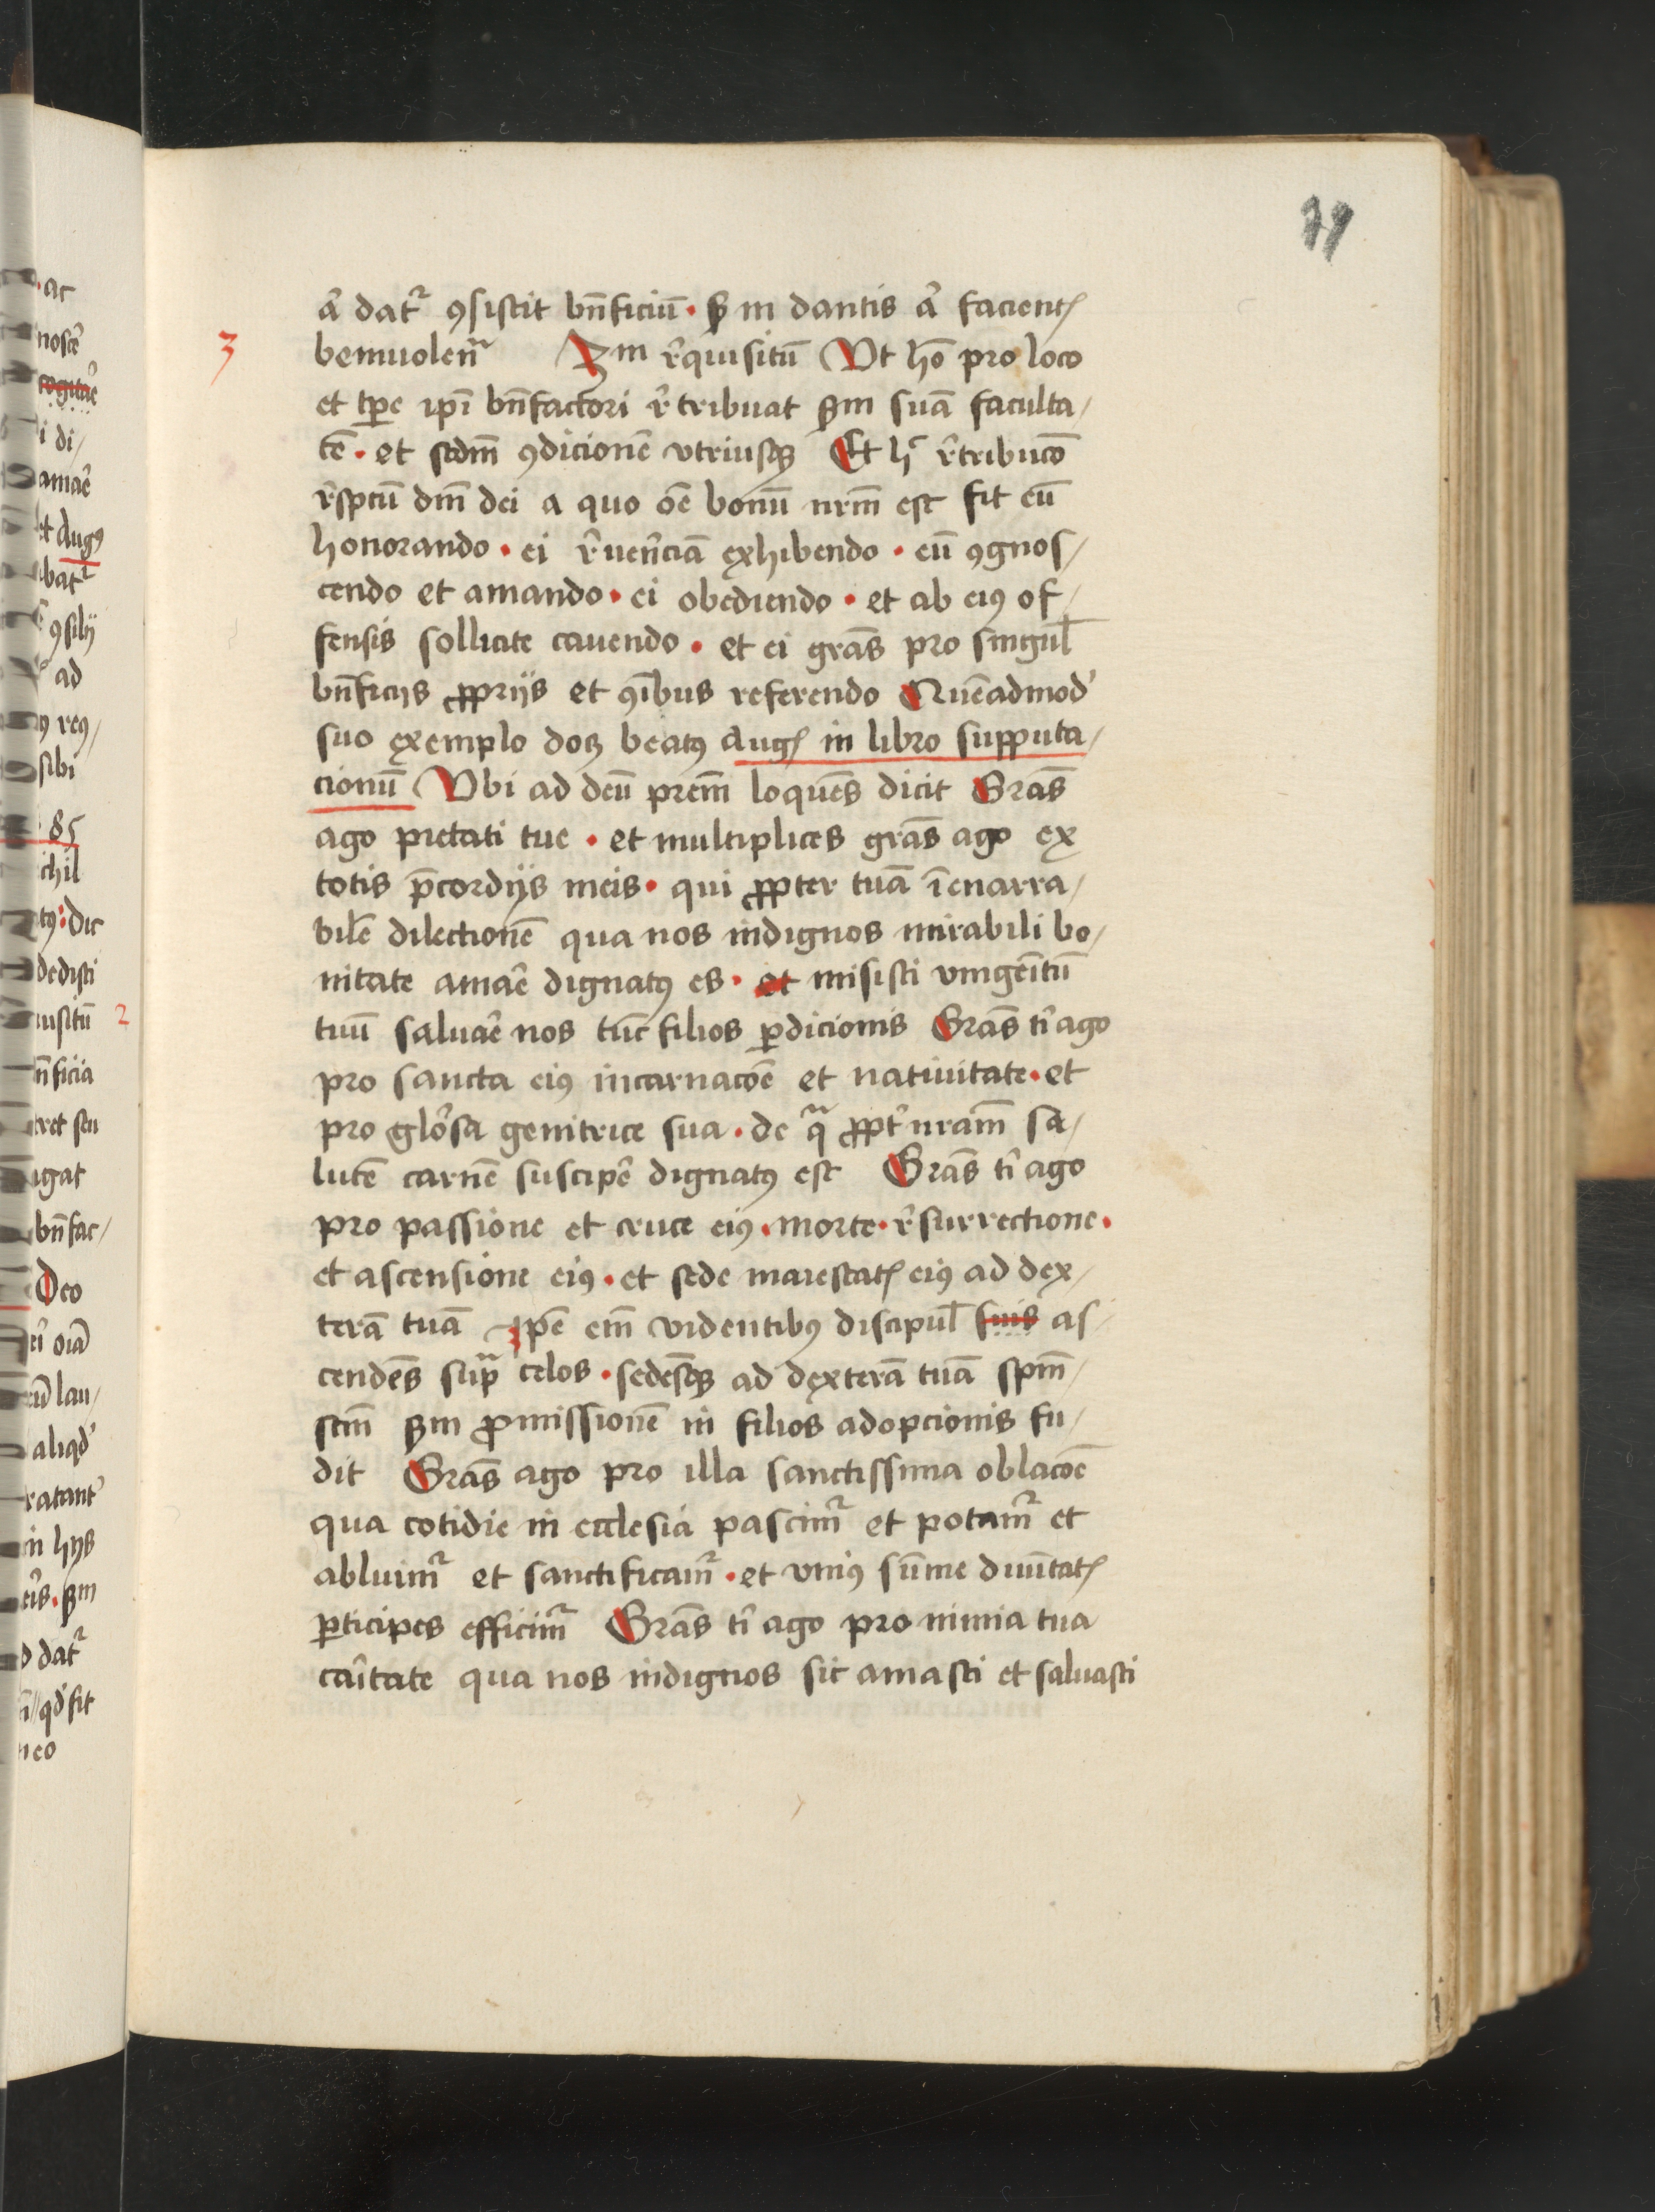 79
a᷑ dat᷑ ꝯsistit bn̄ficiū · ꝫ in dantis a᷑ facientꝭ
3 beniuolenᷓ 3m r᷑quisitū Vt ho̅ pro loco
et tp̄e ip̄i bn̄factori r᷑tribuat ẜm suā faculta/
tē · et scdm̄ ꝯdicionē vtriusqꝫ Et hᷓ r᷑tribuco̅
r᷑spcū dm̄ dei a quo oē bonū nr̄m est fit eū
honorando · ei r᷑uen᷑ciā exhibendo · eū ꝯgnos/
cendo et amando · ei obediendo · et ab eiꝰ of/
fensis sollicite cauendo · et ei gr̄as pro singul̄
bn̄ficijs ꝓprijs et ꝯībus referendo Quēadmod᷑
suo exemplo docꝫ beatꝰ Augꝭ in libro supputa/
cionū Vbi ad deū prēm loquēs dicit Gr̄as
ago pietati tue · et multiplices gr̄as ago ex
totis p̄cordijs meis · qui ꝓpter tuā īenarra/
bilē dilectionē qua nos indignos mirabili bo/
nitate amar᷑e dignatꝰ es · et misisti vnigeītū
tuū saluar᷑e nos tūc filios ꝑdicionis Gr̄as ti᷑ ago
pro sancta eiꝰ incarnacōe et natiuitate · et
pro glo᷑sa genitrice sua · de qᷓ ꝓpt᷑ nr̄am sa/
lutē carnē suscip᷑e dignatꝰ est Gr̄as ti᷑ ago
pro passione et cruce eiꝰ · morte · r᷑surrectione ·
et ascensione eiꝰ · et sede maiestatꝭ eiꝰ ad dex/
terā tuā Ip̄e em̄ videntibꝰ discipul̄ suis as/
cendēs supᷓ celos · sedēsqꝫ ad dexterā tuā spm̄/
scm̄ ẜm ꝓmissionē in filios adopcionis fu/
dit Gr̄as ago pro illa sanctissima oblacōe
qua cotidie in ecclesia pascim᷑ et potam᷑ et
abluim᷑ et sanctificam᷑ · et vniꝰ sūme diuītatꝭ
ꝑticipes efficim᷑ Gr̄as ti᷑ ago pro nimia tua
caītate qua nos indignos sic amasti et saluasti